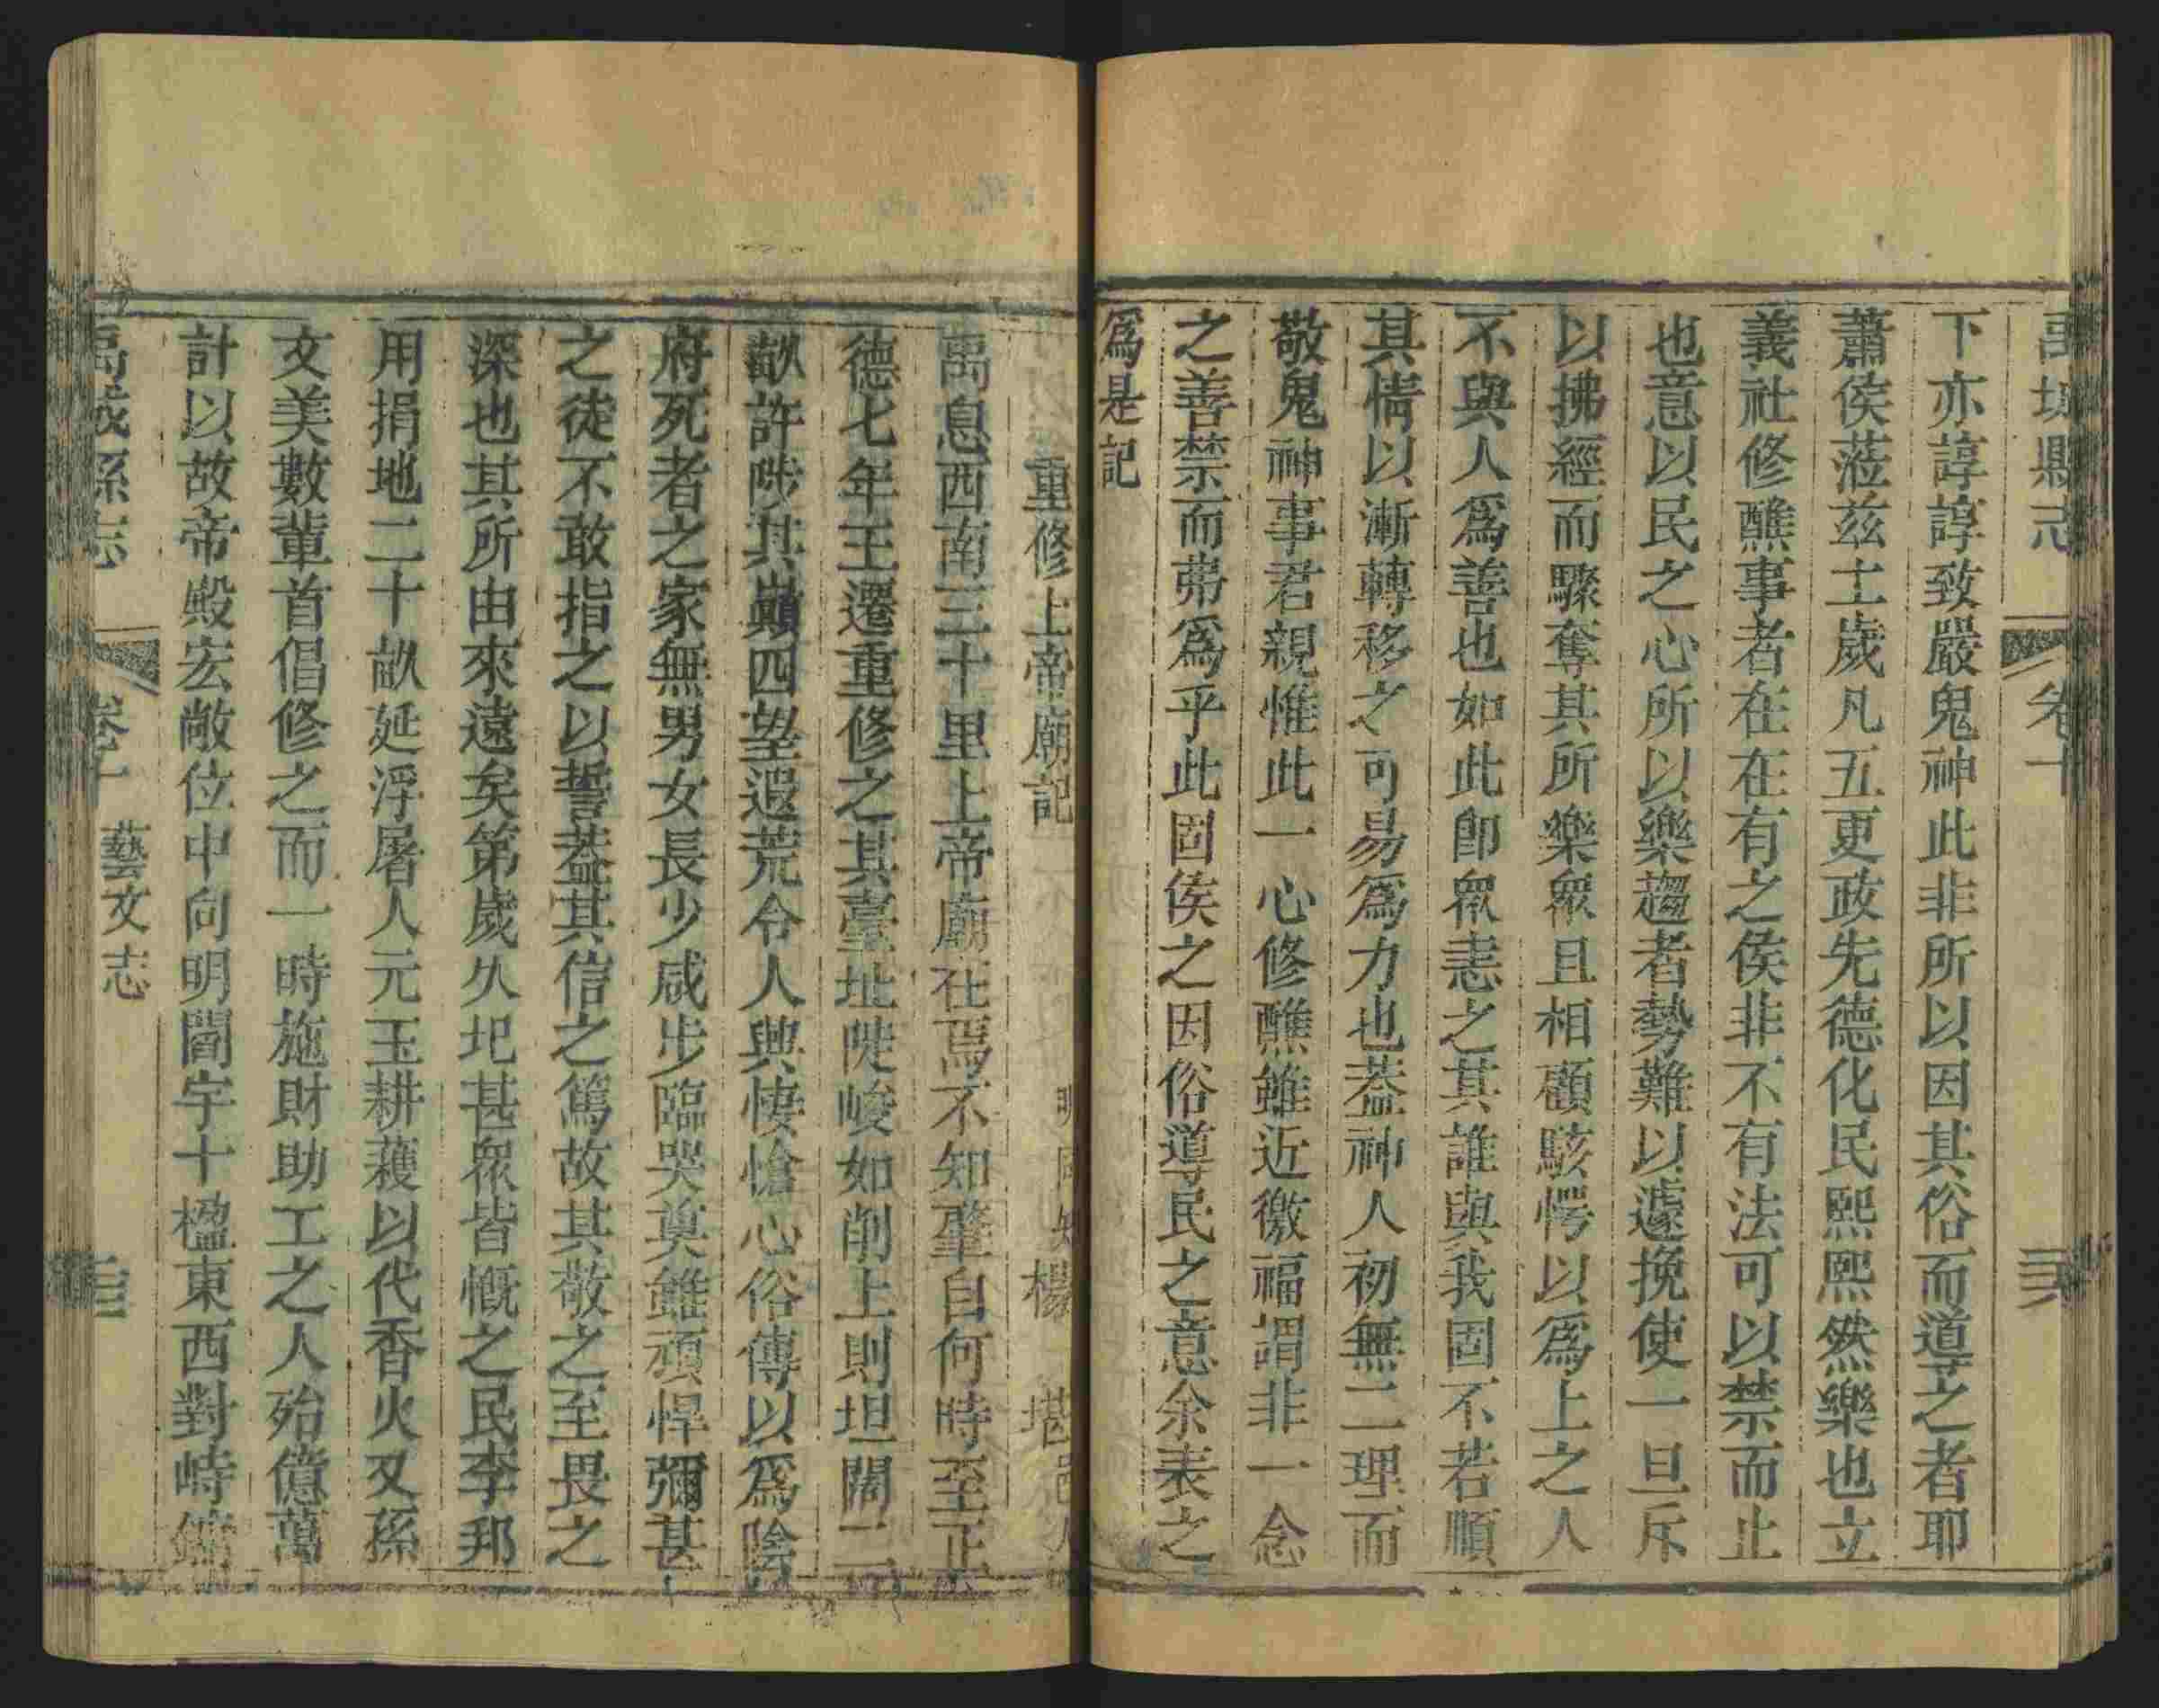 禹城縣志 卷十
下亦諄諄致嚴鬼神此非所以因其俗而導之者耶
蕭侯蒞茲土歲凡五更政先德化民熙熙然樂也立
義社修醮事者在在有之侯非不有法可以禁而止
也意以民之心所以樂趨者勢難以遽挽使一旦斥
以拂經而驟奪其所樂衆且相顧駭愕以爲上之人
不與人爲善也如此卽衆恚之其誰與我固不若順
其情以漸轉移之可易爲力也葢神人初無二理而
敬鬼神事君親惟此一心修醮雖近徼福謂非一念
之善禁而弗爲乎此固侯之因俗導民之意余表之
爲是記
重修上帝廟記 楊 堪邑人
禹息西南三十里上帝廟在焉不知肇自何時至正
德七年王遷重修之其臺址陡峻如削上則坦闊二
畝許陟其巔四望遐荒令人興悽愴心俗傳以爲陰
府死者之家無男女長少咸步臨哭奠雖頑悍彌甚
之徒不敢指之以誓葢其信之篤故其敬之至畏之
深也其所由來遠矣第歲久圮甚衆皆慨之民李邦
用捐地二十畝延浮屠人元玉耕穫以代香火又孫
文美數輩首倡修之而一時施財助工之人殆億萬
計以故帝殿宏敞位中向明閻宇十楹東西對峙鐘
禹城縣志 卷十 藝文志